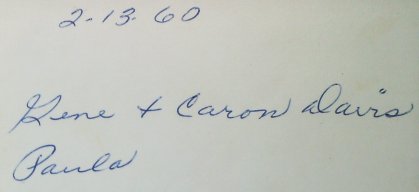 2-13-60
Gene + Caron Davis
Paula